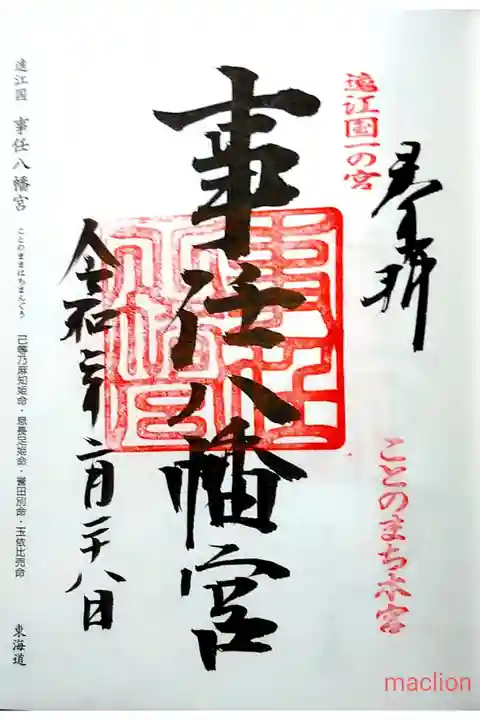 奉拝
遠江国一の宮
ことのまち本宮
事任八幡宮
令和二年二月二十八日
遠江国 事任八幡宮 ことのままはちまんぐう 己等乃麻知姫命・息長足姫命・誉田別命・玉依比売命 東海道
maclion